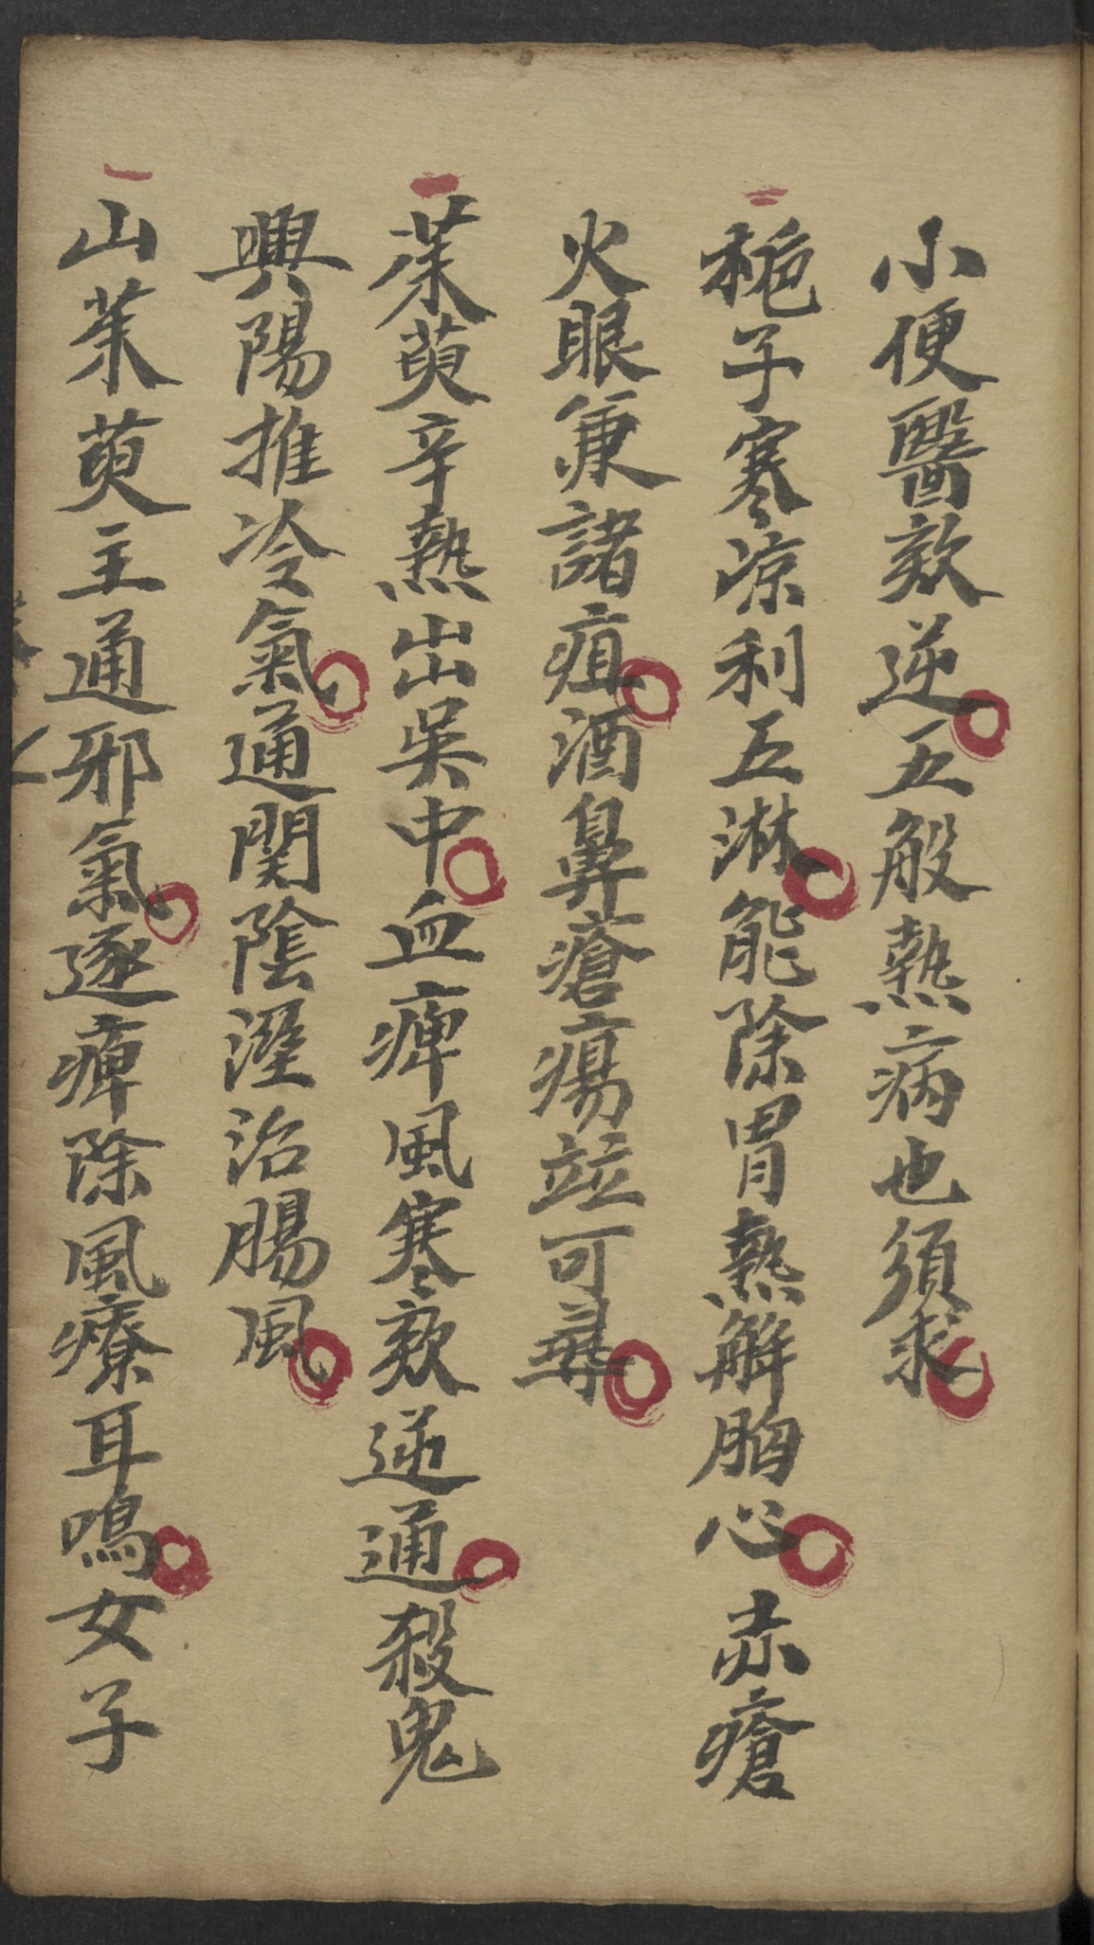 小便醫欬逆五般熱病也須求
梔子寒涼利五淋能除胃熱解胸心赤瘡
火眼兼諸疽酒鼻瘡瘍並可尋
茱萸辛熱出吳中血痺風寒欬逆通殺鬼
興陽推冷氣通関陰溼治腸風
山茱萸主通邪氣逐痺除風療耳鳴女子